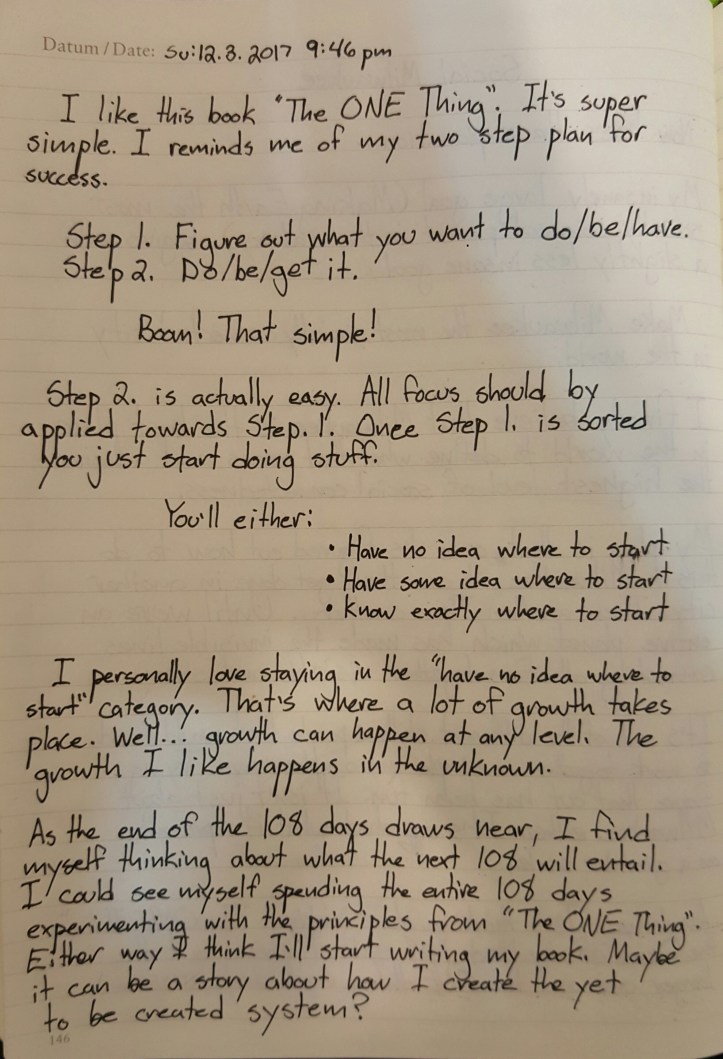 Datum / Date: Su:12.3.2017 9:46 pm
I like this book "The ONE Thing". It's super
simple. I reminds me of my two step plan for
success.
Step 1. Figure out what you want to do/be/have.
Step 2. Do/be/get it.
Boom! That simple!
Step 2. is actually easy. All focus should by
applied towards Step. 1. Once Step 1. is sorted
you just start doing stuff.
You'll either:
• Have no idea where to start
• Have some idea where to start
• Know exactly where to start
I personally love staying in the "have no idea where to
start" category. That's where a lot of growth takes
place. Well... growth can happen at any level. The
growth I like happens in the unknown.
As the end of the 108 days draws near, I find
myself thinking about what the next 108 will entail.
I could see myself spending the entire 108 days
experimenting with the principles from "The ONE Thing".
Either way I think I'll start writing my book. Maybe
it can be a story about how I create the yet
to be created system?
146